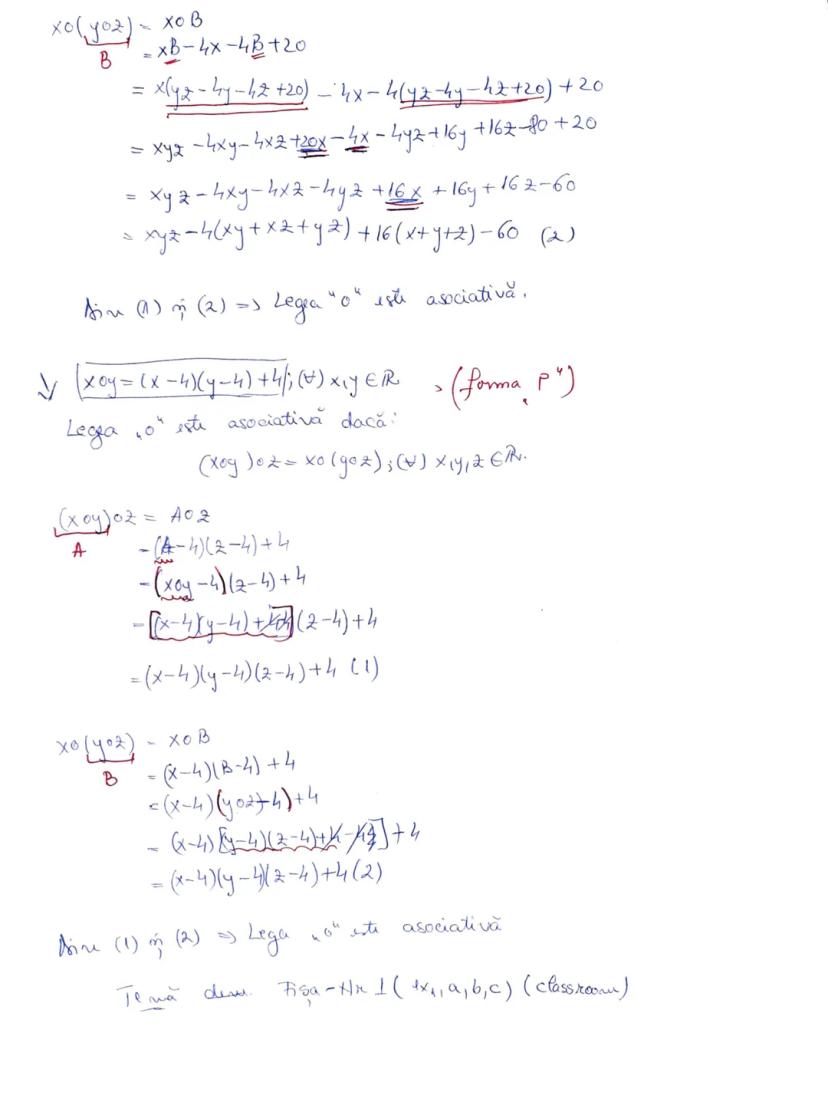 xo(yoz) = xoB
B
= xB-4x-4B+20
= x(yz-4y-4z+20) - 4x-4(yz-4y-4z+20)+20
= xyz-4xy-4xz+20x-4x-4yz+16y+16z-80+20
= xyz-4xy-4xz-4yz+16x+16y+16z-60
= xyz-4(xy+xz+yz)+16(x+y+z)-60 (2)
Din (1) și (2) => Legea "o" este asociativă.
xoy=(x-4)(y-4)+4; (∀) x,y∈R (forma „P")
Legea „o" este asociativă dacă:
(xoy)oz = xo(yoz); (∀) x,y,z∈R.
(xoy)oz = Aoz
A
=(A-4)(z-4)+4
=(xoy-4)(z-4)+4
=[(x-4)(y-4)+4-4](z-4)+4
=(x-4)(y-4)(z-4)+4 (1)
xo(yoz) = xoB
B
=(x-4)(B-4)+4
=(x-4)(yoz-4)+4
= (x-4)[(y-4)(z-4)+4-4]+4
= (x-4)(y-4)(z-4)+4 (2)
Din (1) și (2) => Legea „o" este asociativă
Temă Fișa-Nr 1 (ex1,a,b,c) (classroom)